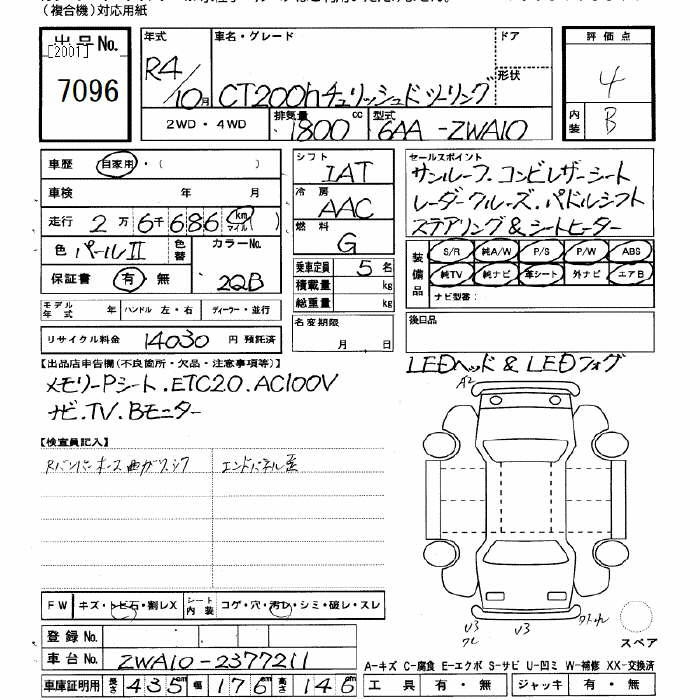 (複合機)対応用紙
出品 No.
[2001]
7096
年式 R4/10月
車名・グレード CT200hチェリッシュド ツーリング
ドア
形状
2WD・4WD
排気量 1800 cc
型式 6AA-ZWA10
評価点 4
内装 B
車歴 自家用・( )
車検 年 月
走行 2万6千686 km マイル ( )
色 パールII
色替
カラーNo. 22B
保証書 有・無
モデル年式 年 ハンドル 左・右 ディーラー・並行
リサイクル料金 14030 円 預託済
シフト IAT
冷房 AAC
燃料 G
乗車定員 5名
積載量 kg
総重量 kg
名変期限
月 日
セールスポイント
サンルーフ.コンビレザーシート
レーダークルーズ.パドルシフト
ステアリング&シートヒーター
装備品
S/R 純A/W P/S P/W ABS
純TV 純ナビ 革シート 外ナビ エアB
ナビ型番:
後日品
LEDヘッド & LEDフォグ
【出品店申告欄(不良箇所・欠品・注意事項等)】
メモリーPシート.ETC2.0.AC100V
ナビ.TV.Bモニター
【検査員記入】
エンドパネル歪
A2
U3
U3
スペア
FW キズ・トビ石・割レX
シート内装 コゲ・穴・汚レ・シミ・破レ・スレ
登録 No.
車台 No. ZWA10-2377211
車庫証明用 長さ 435cm 幅 176cm 高さ 146cm
A-キズ C-腐食 E-エクボ S-サビ U-凹ミ W-補修 XX-交換済
工具 有・無 ジャッキ 有・無